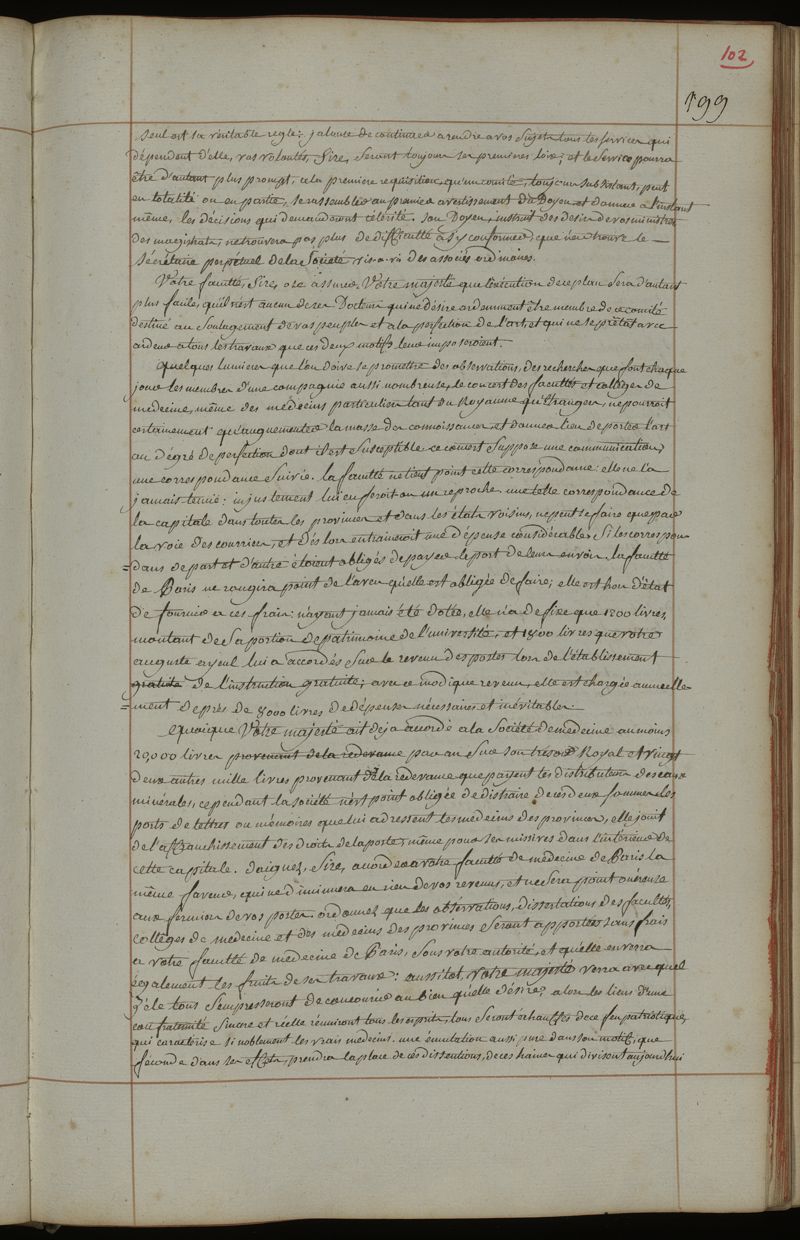 102
199
seul est sa véritable regle: jalouse de continuer a rendre a vos Sujets tous les services qui
dépendent d'elle, vos volontés, Sire, seront toujours ses premieres loix; et le Service pourra
être d'autant plus prompt, a la premiere requisition, qu'un comité, toujours subsistant, peut
en totalité ou en partie, se rassembler au premier avertissement du Doyen et donner a l'instant
même, les décisions qui demanderont célérité. son Doyen, instruit des desirs de vos ministres
des magistrats, ne trouvera pas plus de difficulté a s'y conformer, que n'en trouve le
Sécrétaire perpétuel de la Société vis-a-vis des associés ordinaires.
Votre faculté, Sire, ose assurer Votre majesté que l'exécution de ce plan sera d'autant
plus facile, qu'il n'est aucun de ses Docteurs qui ne désire ardemment être membre de ce comité
destiné au Soulagement de vos peuples et a la perfection de l'art, et qui ne se prétât avec
ardeur a tous les travaux que ces deux motifs leur imposeroient.
Quelques lumieres que l'on doive se promettre des observations, des recherches que font chaque
jour les membres d'une compagnie aussi nombreuse, le concert des facultés et colleges de
medecine, même des medecins particuliers tant du Royaume qu'Etrangers, ne pourroit
certainement qu'augmenter la masse des connoissances, et donner lieu de porter l'art
au dégré de perfection dont il est susceptible. ce concert suppose une communication,
une correspondance Suivie. la faculté ne tient point cette correspondance: elle ne l'a
jamais tenüe: injustement lui en feroit on un reproche. une telle correspondance de
la capitale dans toutes les provinces et dans les états voisins, ne peut se faire que par
la voie des courriers, et dès lors entraineroit une dépense considérable, Si les correspon-
=dans de part et d'autre étoient obligés de payer le port de leurs envois. la faculté
de Paris ne rougira point de l'aveu qu'elle est obligée de faire; elle est hors d'état
de fournir a ces frais: n'ayant jamais été dotée, elle n'a de fixe que 1200 livres,
montant de sa portion de patrimoine de l'université, et 1800 livres que votre
auguste ayeul lui a accordés sur le revenu des postes lors de l'établissement
gratuite de l'instruction gratuite; avec ce modique revenu, elle est chargée annuelle-
=ment de près de 8000 livres de dépenses nécessaires et inévitables.
Quoique Votre majesté ait deja accordé a la Société de medecine au moins
20,000 livres provenant de la redevance par an sur son trésor Royal et vingt
deux autres mille livres provenant de la redevance que payent les distributeurs des eaux
minérales, cependant la société n'est point obligée de distraire de ces deux sommes les
ports de lettres ou mémoires que lui adressent les medecins des provinces, elle jouit
de l'affranchissement des droits de la poste, même pour ses missives dans l'intérieur de
cette capitale. daignez, Sire, accorder a votre faculté de medecine de Paris la
même faveur, qui ne diminuera en rien de vos revenus, et ne sera point onéreuse
aux fermiers de vos postes. ordonnez que les observations, dissertations des facultés,
colléges de medecine et des medecins des provinces seront apportées sans frais
a votre faculté de medecine de Paris, sous votre autorité, et qu'elle enverra
également les fruits de ses travaux: aussitôt, votre majesté verra avec quel
zèle tous s'empresseront de concourir au bien qu'elle désire; alors les liens d'une
confraternité sincere et réelle réuniront tous les esprits, tous seront échauffés de ce feu patriotique,
qui caractérise si noblement les vrais medecins. une émulation aussi pure dans son motif, que
féconde dans ses effets, prendra la place de ces dissentions, de ces haines qui divisent aujourd'hui